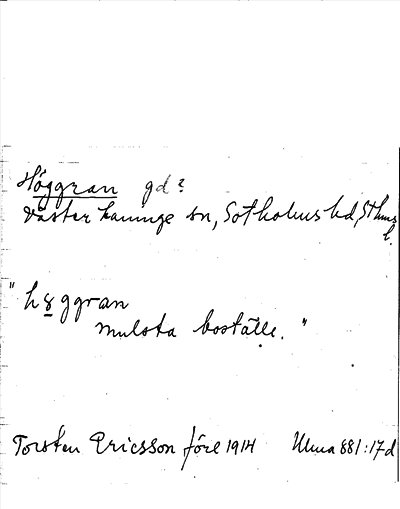 Höggran gd?
Västerhaninge sn, Sotholms hd, Sthms
l.
"høggran
mulsta boställe."
Torsten Ericsson före 1914 Ulma 881:17d